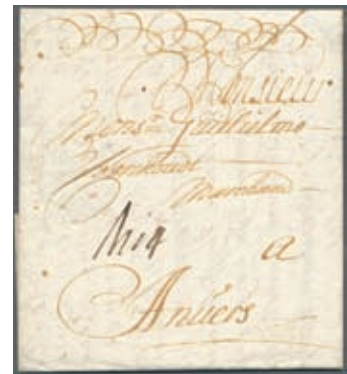 Monsieur
Mons:r Guilielmo

Marchand
a
Anuers